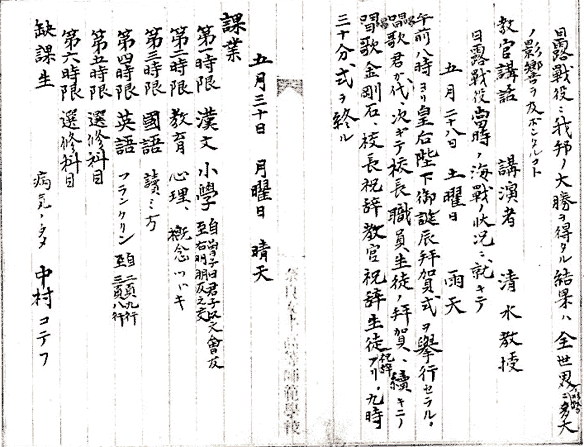 日露戦役ニ我邦ノ大勝ヲ得タル結果ハ全世界ニ多大
ノ影響ヲ及ボシタルコト
教官講話 講演者 清水教授
日露戦役当時ノ海戦ノ状況ニ就キテ
五月二十八日 土曜日 雨天
午前八時ヨリ皇后陛下御誕辰拜賀式ヲ擧行セラル。
唱歌君が代、次ギテ校長職員生徒ノ拜賀、續キテ
唱歌金剛石、校長祝辞教官祝辞生徒祝辞アリ、九時
三十分、式ヲ終ル
五月三十日 月曜日 晴天
課業
第一時限 漢文 小學 自曾子曰君子以文會友 至右明朋友之交
第二時限 教育 心理、概念ツヾキ
第三時限 國語 讀ミ方
第四時限 英語 フランクリン 自二頁九行 至三頁八行
第五時限 選修科目
第六時限 選修科目
缺課生 病気ノタメ 中村コテフ
高等師範學校